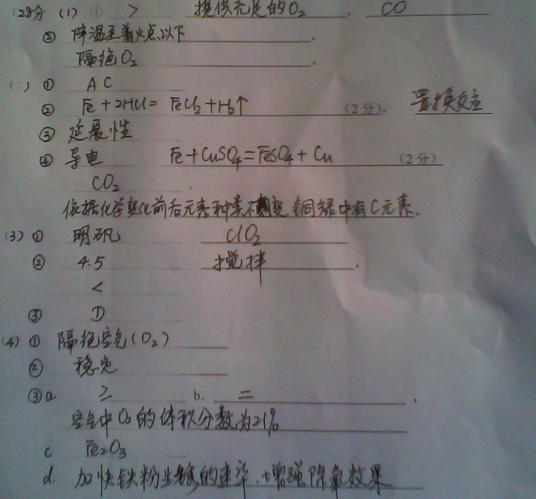 (28分) (1) ① > 提供充足的O₂ . CO
② 降温至着火点以下 .
隔绝O₂ .
(2) ① AC
② Fe+2HCl=FeCl₂+H₂↑ (2分). 置换反应
③ 延展性
④ 导电 Fe+CuSO₄=FeSO₄+Cu (2分)
CO₂ .
依据化学变化前后元素种类不变,铜绿中有C元素.
(3) ① 明矾 ClO₂
② 4.5 搅拌 .
<
③ ①
(4) ① 隔绝空气(O₂)
② 稳定
③ a. ≥ b. = .
空气中O₂的体积分数为21%
c Fe₂O₃
d. 加快铁粉生锈的速率,增强除氧效果